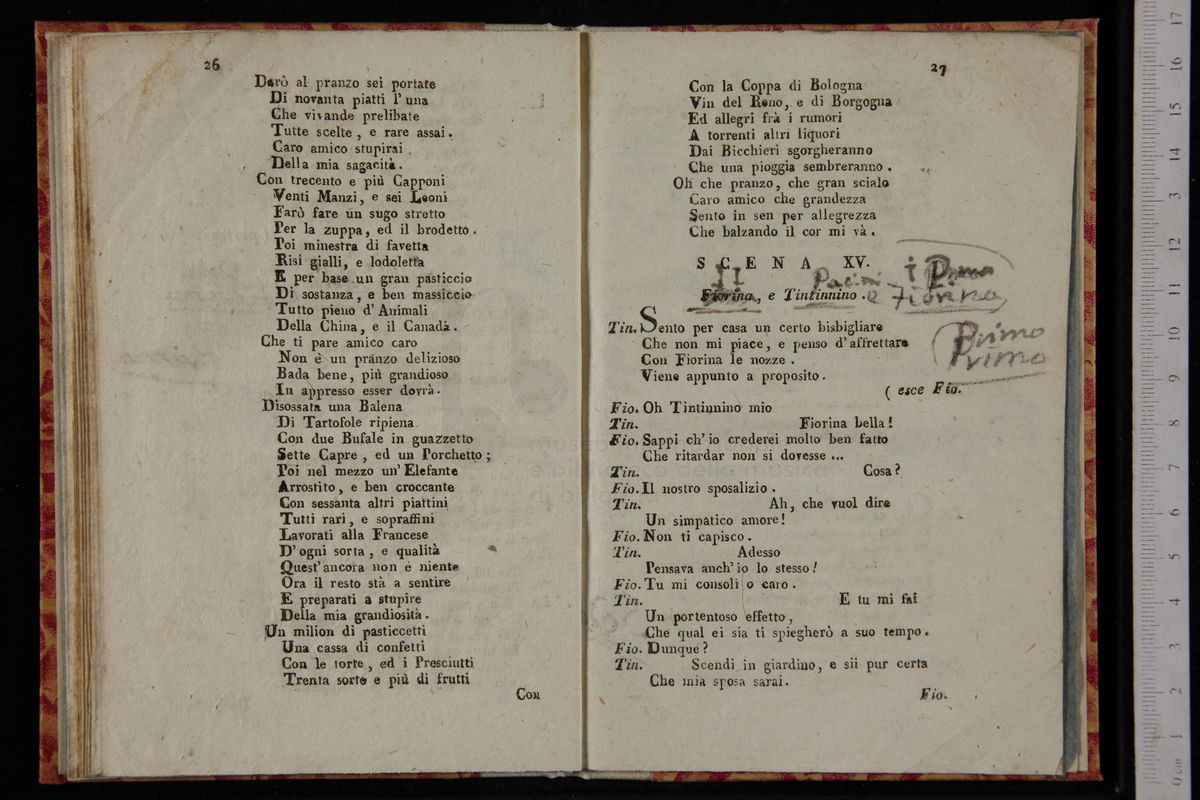 26
Darò al pranzo sei portate
Di novanta piatti l' una
Che vivande prelibate
Tutte scelte , e rare assai .
Caro amico stupirai
Della mia sagacità .
Con trecento e più Capponi
Venti Manzi, e sei Leoni
Farò fare un sugo stretto
Per la zuppa, ed il brodetto .
Poi minestra di favetta
Risi gialli, e lodoletta
E per base un gran pasticcio
Di sostanza, e ben massiccio
Tutto pieno d' Animali
Della China, e il Canadà .
Che ti pare amico caro
Non è un pranzo delizioso
Bada bene, più grandioso
In appresso esser dovrà .
Disossata una Balena
Di Tartofole ripiena
Con due Bufale in guazzetto
Sette Capre , ed un Porchetto ;
Poi nel mezzo un' Elefante
Arrostito, e ben croccante
Con sessanta altri piattini
Tutti rari , e sopraffini
Lavorati alla Francese
D' ogni sorta , e qualità
Quest' ancora non è niente
Ora il resto stà a sentire
E preparati a stupire
Della mia grandiosità .
Un milion di pasticcetti
Una cassa di confetti
Con le torte , ed i Presciutti
Trenta sorte e più di frutti
Con
27
Con la Coppa di Bologna
Vin del Reno, e di Borgogna
Ed allegri frà i rumori
A torrenti altri liquori
Dai Bicchieri sgorgheranno
Che una pioggia sembreranno .
Oh che pranzo, che gran scialo
Caro amico che grandezza
Sento in sen per allegrezza
Che balzando il cor mi và .
SCENA XV.
II Pacini i Primo
Fiorina, e Tintinnino . e Fiorina
Tin. Sento per casa un certo bisbigliare
Che non mi piace, e penso d' affrettare
Primo
Con Fiorina le nozze .
Primo
Viene appunto a proposito .
( esce Fio.
Fio. Oh Tintinnino mio
Tin. Fiorina bella !
Fio. Sappi ch' io crederei molto ben fatto
Che ritardar non si dovesse ...
Tin. Cosa ?
Fio. Il nostro sposalizio .
Tin. Ah, che vuol dire
Un simpatico amore !
Fio. Non ti capisco .
Tin. Adesso
Pensava anch' io lo stesso !
Fio. Tu mi consoli o caro .
Tin. E tu mi fai
Un portentoso effetto ,
Che qual ei sia ti spiegherò a suo tempo .
Fio. Dunque ?
Tin. Scendi in giardino, e sii pur certa
Che mia sposa sarai .
Fio.